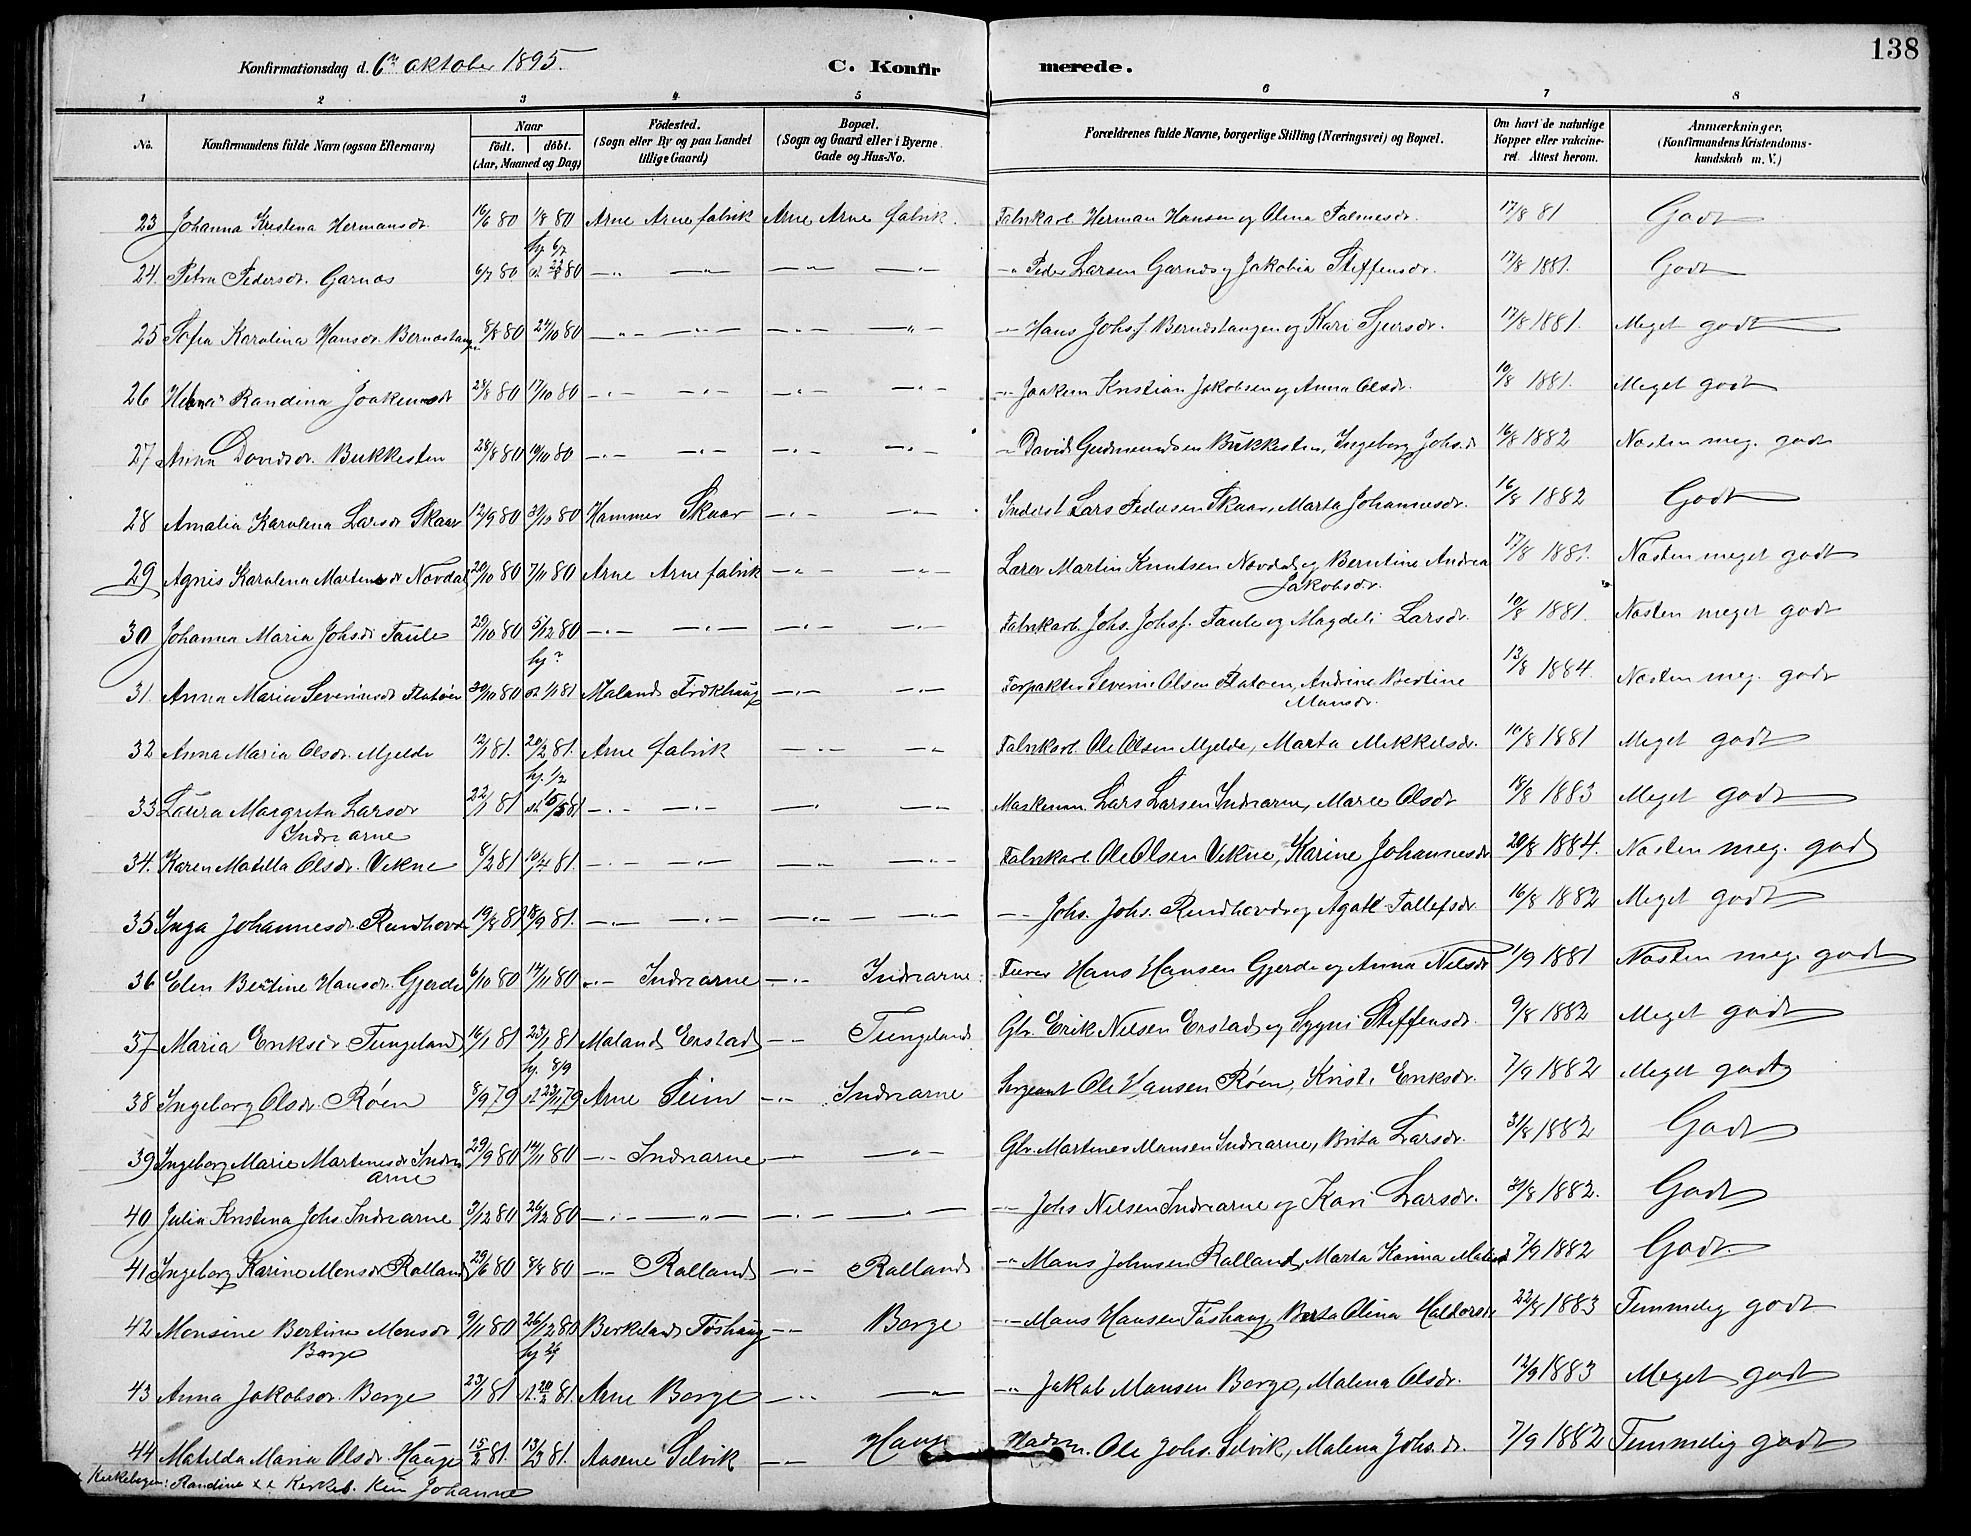 138
Konfirmationsdag d. 6te oktober 1895. C. Konfirmerede.
1 2 3 4 5 6 7 8
No. Konfirmandens fulde Navn (ogsaa Efternavn) Naar födt. döbt. (Aar, Maaned og Dag) Födested. (Sogn eller By og paa Landet tillige Gaard) Bopæl. (Sogn og Gaard eller i Byerne Gade og Hus-No. Forældrenes fulde Navne, borgerlige Stilling (Næringsvei) og Bopæl. Om havt de naturlige Kopper eller vakcineret. Attest herom. Anmærkninger. (Konfirmandens Kristendomskundskab m. V.)
23 Johanna Kristina Hermansdr. 16/6 80 1/8 80 Arne Arne fabrik Arne Arne fabrik. Fabrikarb. Herman Hansen og Olina Salmesdr. 17/8 81 Godt
24. Petra Pedersdr. Garnæs 6/7 80 hj. 6/7 80 — " — " — " — Peder Larsen Garnæs og Jakobia Steffensdr. 17/8 1881. Godt
25 Sofia Karolina Hansdr. Bernæstangen 8/8 80 24/10 80 — " — " — " — Hans Johs. Bernæstangen og Kari Sjursdr. 17/8 1881. Meget godt
26 Helena Randina Joakemsdr 28/8 80 17/10 80 — " — " — " — Joakem Kristian Jakobsen og Anna Olsdr. 10/8 1881. Meget godt
27 Anna Davidsdr. Bukkesten 28/8 80 10/10 80 — " — " — " — David Gudmundsen Bukkesten, Ingeborg Johs.dr 16/8 1882 Næsten meg. godt
28 Amalia Karolina Larsdr Skaar 12/9 80 31/10 80 Hammer Skaar — " — Inderst Lars Pedersen Skaar, Marta Johannesdr. 16/8 1882 Godt
29 Agnis Karolena Martensdr Novdal 20/10 80 7/11 80 Arne Arne fabrik — " — Lærer Martin Knutsen Novdal og Berntine Andrea Jakobsdr. 17/8 1881. Næsten meget godt
30 Johanna Maria Johsdr Faule 29/10 80 5/12 80 — " — " — " — Fabrikarb. Johs. Johs. Faule og Magdeli Larsdr. 10/8 1881. Næsten meget godt
31. Anna Maria Severinsdr Flatøen 30/10 80 1/1 81 Maland Trøkhaug — " — Forpakter Severin Olsen Flatøen, Andrine Bertine Mansdr. 13/8 1884. Næsten meg. godt
32 Anna Maria Olsdr. Mjelde 12/1 81. 20/2 81. Arne fabrik — " — Fabrikarb. Ole Olsen Mjelde, Marta Mikkelsdr. 10/8 1881 Meget godt
33 Laura Margreta Larsdr Indrearne 22/1 81 hj. 1/2 15/5 81 — " — " — " — Maskinm. Lars Larsen Indrearne, Maree Olsdr 18/8 1883 Meget godt
34. Karen Matilla Olsdr. Vikne 8/2 81 10/4 81. — " — " — " — Fabrikarb. Ole Olsen Vikne, Karine Johannesdr 20/8 1884. Næsten meg. godt
35 Inga Johannesdr. Rundhovde 19/8 81 18/9 81. — " — " — " — Johs. Johs. Rundhovde og Agate Tollefsdr. 16/8 1882 Meget godt
36 Elen Bertine Hansdr. Gjerde 6/10 80 14/11 80 — " — Indrearne — " — Indrearne Hans Hansen Gjerde og Anna Nilsdr 1/9 1881 Næsten meg. godt
37 Maria Eriksdr Tungeland 16/1 81 23/1 81 Maland Erstad — " — Tungeland Gbr. Erik Nilsen Erstad og Sygni Steffensdr. 9/8 1882 Meget godt
38 Ingeborg Olsdr. Røen 8/9 79 hj. 8/9 23/11 79 Arne Seim — " — Indrearne Sergeant Ole Hansen Røen, Kristi Eriksdr. 7/9 1882 Meget godt
39 Ingeborg Marie Martinesdr Indrearne 29/9 80 14/11 80 — " — Indrearne — " — Gbr. Martines Monsen Indrearne, Brita Larsdr. 31/8 1882 Godt
40 Julia Kristina Johs. Indrearne 3/12 80 26/12 80 — " — " — " — Johs Nilsen Indrearne og Kari Larsdr. 31/8 1882. Godt
41 Ingeborg Karine Monsdr Rolland 29/6 80 8/8 80 — " — Rolland — " — Rolland — " — Mons Johnsen Rolland, Marta Karina 7/9 1882 Godt.
42 Monsine Bertine Monsdr Borge 9/11 80 26/12 80 Birkeland Toshaug — " — Borge — " — Mons Hansen Toshaug, Berta Olina Haldorsdr 22/8 1883 Temmelig godt
43 Anna Jakobsdr. Borge 23/1 81 20/2 81. Arne Borge — " — — " — Jakob Monsen Borge, Malena Olsdr. 12/9 1883 Meget godt
44 Matilda Maria Olsdr. Hauge 15/2 81. 13/3 81. Aasene Selvik — " — Hauge Ole Johs. Selvik, Malena Johs.dr. 7/9 1882 Temmelig godt
x Kirkebogen: Randine x x Kirkeb. kun Johanne